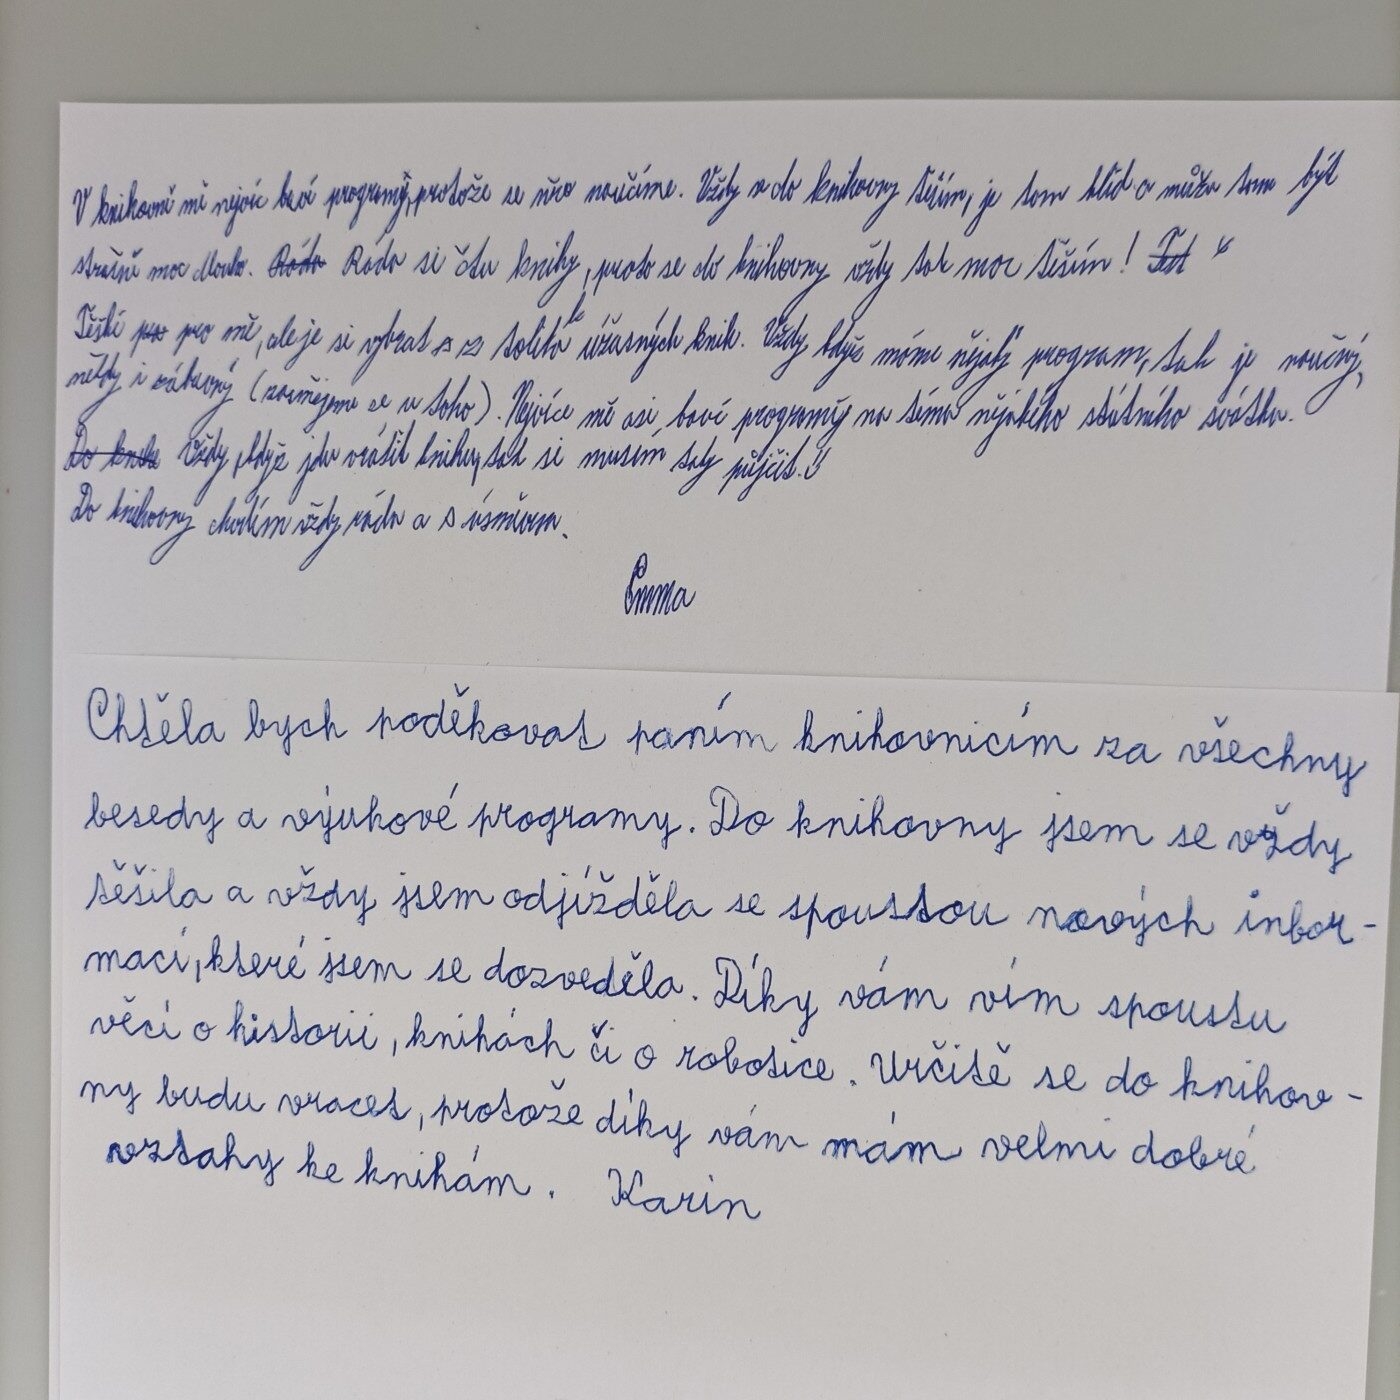 V knihovně mě nejvíc baví programy, protože se něco naučíme. Vždy se do knihovny těším, je tam klid a můžu tam být
strašně moc dlouho. Ráda Ráda si čtu knihy, proto se do knihovny vždy tak moc těším!
Těžké pro pro mě, ale je si vybrat z tolika úžasných knih. Vždy když máme nějaký program, tak je naučný,
někdy i zábavný (zasmějeme se u toho). Nejvíce mě asi baví programy na téma nějakého státního svátku.
Do knih Vždy, když jdu vrátit knihu, tak si musím taky půjčit.
Do knihovny chodím vždy ráda a s úsměvem.
Emma
Chtěla bych poděkovat paním knihovnicím za všechny
besedy a výukové programy. Do knihovny jsem se vždy
těšila a vždy jsem odjížděla se spoustou nových infor-
mací, které jsem se dozveděla. Díky vám vím spoustu
věcí o historii, knihách či o robotice. Určitě se do knihov-
ny budu vracet, protože díky vám mám velmi dobré
vztahy ke knihám. Karin